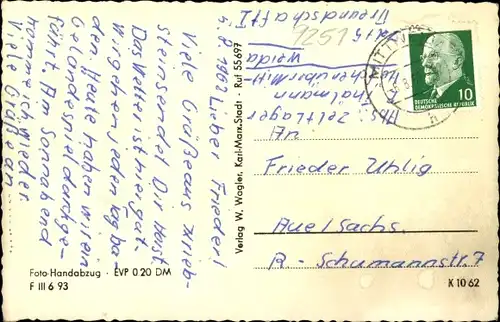 5. 8. 1962 Lieber Frieder!
Viele Grüße aus Krieb-
stein sendet Dir Horst
Das Wetter ist hier gut
Wir gehen jeden Tag ba-
den. Heute haben wir ein
Geländespiel durchge-
führt. Am Sonnabend
komme ich wieder.
Viele Grüße an
Verlag W. Wagler, Karl-Marx-Stadt · Ruf 55697
Abs. Zeltlager
Thälmann
Weida
Freundschaft I
1251
MITTW
DEUTSCHE
DEMOKRATISCHE REPUBLIK
10
An
Frieder Uhlig
Aue / Sachs.
R.-Schumannstr. 7
Foto-Handabzug · EVP 0 20 DM
F III 6 93
K 10 62